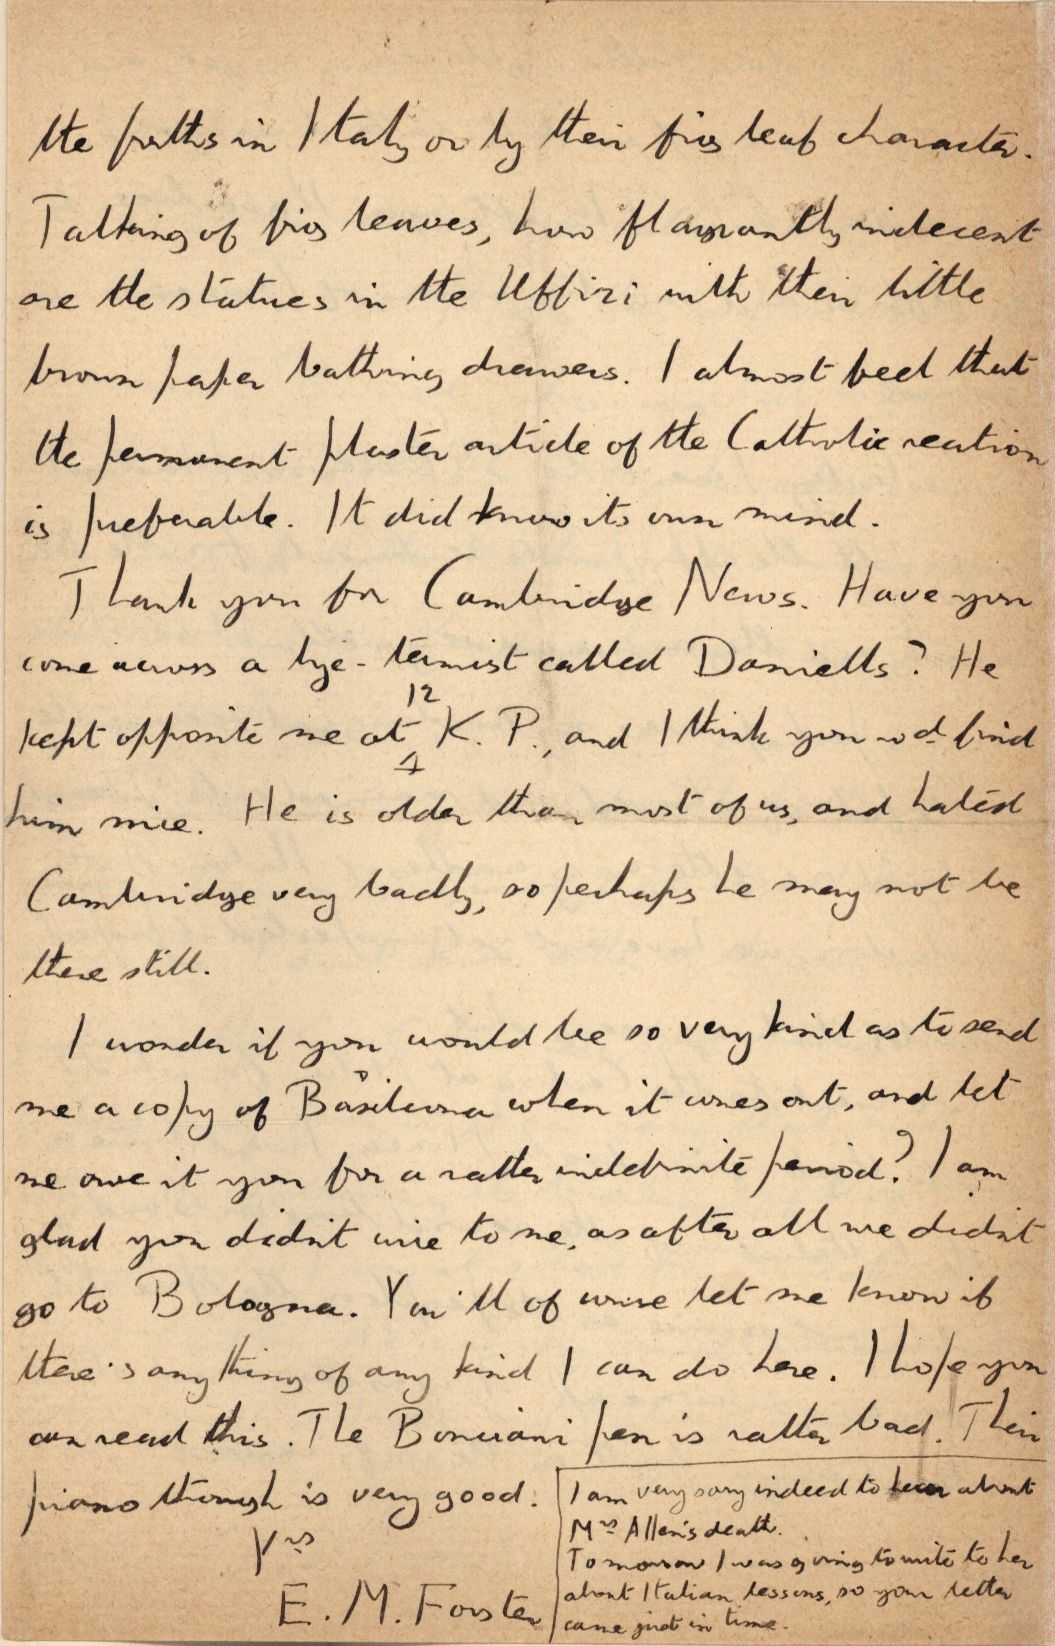 the paths in Italy or by their fig leaf character.
Talking of fig leaves, how flagrantly indecent
are the statues in the Uffizi with their little
brown paper bathing drawers. I almost feel that
the permanent plaster article of the Catholic reaction
is preferable. It did know its own mind.
Thank you for Cambridge News. Have you
come across a bye-termist called Daniells? He
kept opposite me at 12 K. P., and I think you wd find
him nice. He is older than most of us, and hated
Cambridge very badly, so perhaps he may not be
there still.
I wonder if you would be so very kind as to send
me a copy of Basileona when it comes out, and let
me owe it you for a rather indefinite period? I am
glad you didn't wire to me, as after all we didn't
go to Bologna. You'll of course let me know if
there's anything of any kind I can do here. I hope you
can read this. The Bonciani pen is rather bad. Their
piano though is very good.
Yrs
E. M. Forster
I am very sorry indeed to hear about
Mrs Allen's death.
Tomorrow I was going to write to her
about Italian lessons, so your letter
came just in time.